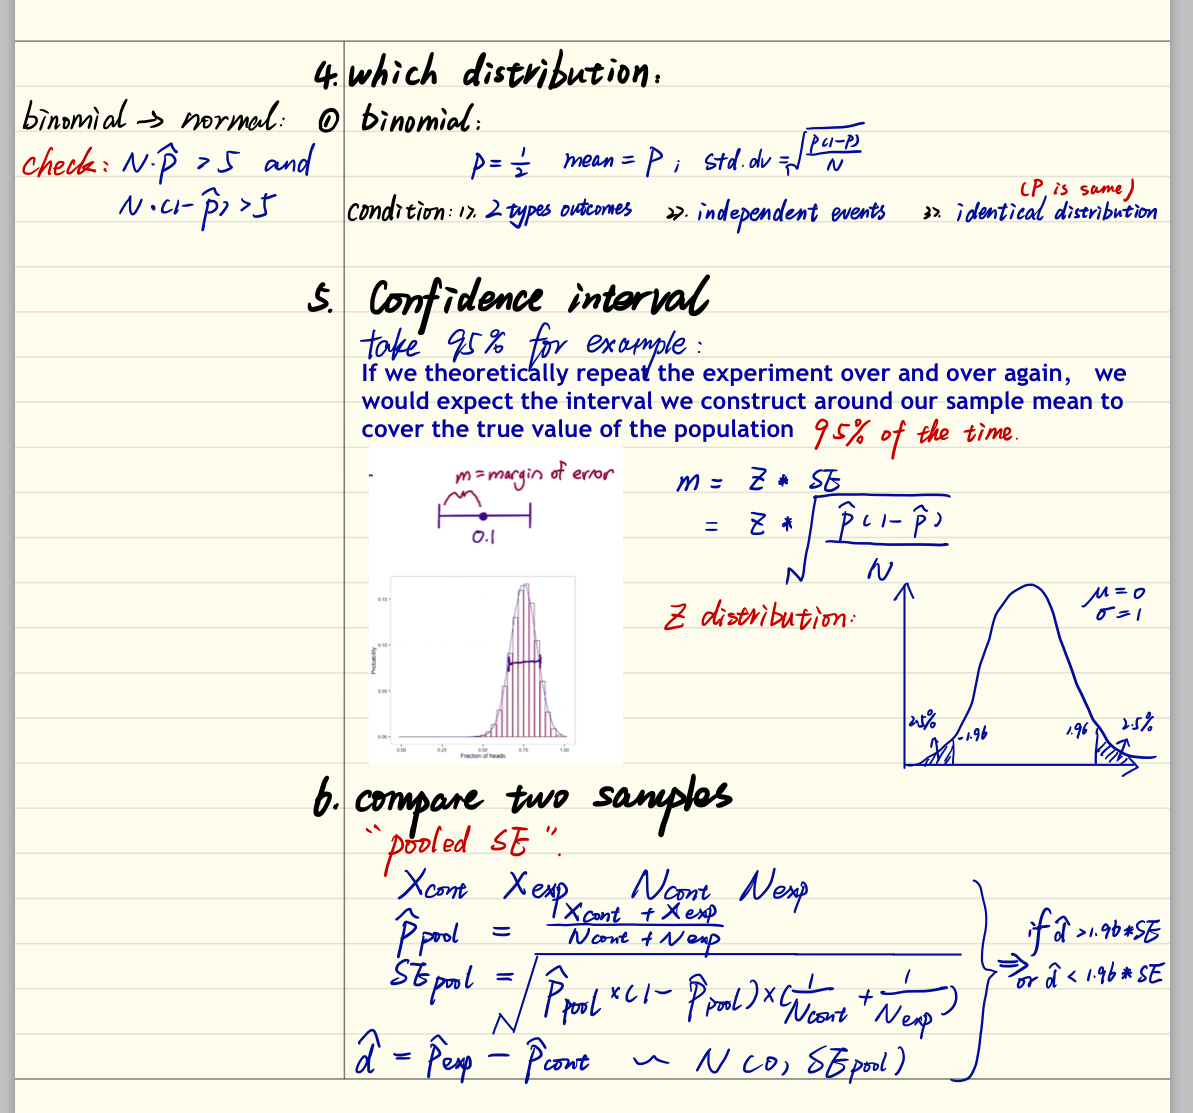 4. which distribution:
binomial → normal: ① binomial:
check: N·p̂ > 5 and
N·(1-p̂) > 5
p = 1/2 mean = P ; std.dv = √(P(1-P)/N)
(P is same)
condition: 1>. 2 types outcomes 2>. independent events 3>. identical distribution
5. Confidence interval
take 95% for example:
If we theoretically repeat the experiment over and over again, we
would expect the interval we construct around our sample mean to
cover the true value of the population 95% of the time.
m = margin of error
0.1
m = Z * SE
= Z * √(p̂(1-p̂)/N)
Z distribution:
μ = 0
σ = 1
2.5% -1.96 1.96 2.5%
Probability
0.15
0.10
0.05
0.00
0.00 0.25 0.50 0.75 1.00
Fraction of heads
6. compare two samples
"pooled SE":
Xcont Xexp Ncont Nexp
P̂pool = (Xcont + Xexp)/(Ncont + Nexp)
SEpool = √(P̂pool × (1 - P̂pool) × (1/Ncont + 1/Nexp))
d̂ = P̂exp - P̂cont ~ N(0, SEpool)
⇒ if d̂ > 1.96 * SE
or d̂ < 1.96 * SE